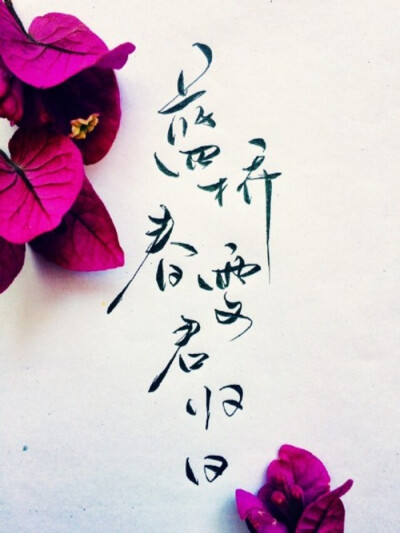 蓝桥春雪君归日